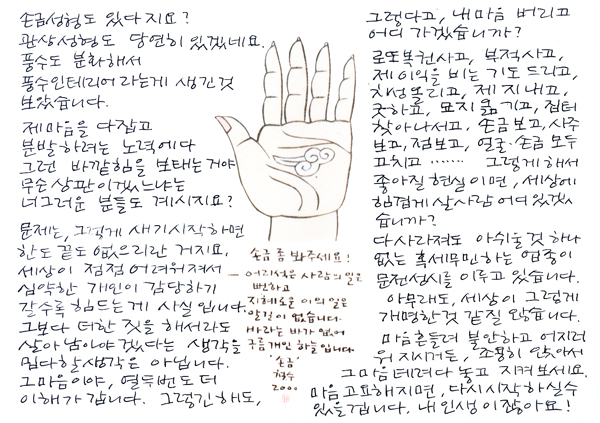 손금성형도 있다지요?
관상성형도 당연히 있겠네요.
풍수도 분화해서
풍수인테리어라는게 생긴것
보았습니다.
제마음을 다잡고
분발하려는 노력에다
그런 바깥힘을 보태는거야
무슨상관이겠느냐는
너그러운 분들도 계시지요?
문제는, 그렇게 새기시작하면
한도 끝도 없으리란 거지요.
세상이 점점어려워져서
심약한 개인이 감당하기
갈수록 힘드는게 사실입니다.
그보다 더한 짓을 해서라도
살아남아야겠다는 생각을
뭐다할생각은 아닙니다.
그마음이야, 열두번도 더
이해가 갑니다. 그렇긴해도,
손금 좀 봐주세요!
어리석은 사람의 말은
뻔하고
지혜로운 이의 말은
알길이 없습니다.
바라는 바가 없어
구름개인 하늘입니다
'손금'
철수
2000
그렇다고, 내마음 버리고
어디 가겠습니까?
로또복권사고, 복적사고,
제이익을 비는 기도 드리고,
치성올리고, 제 지내고,
굿하고, 묘지 옮기고, 집터
찾아나서고, 손금보고, 사주
보고, 점보고, 얼굴·손금 모두
고치고 …… 그렇게 해서
좋아질 현실이면, 세상에
힘겹게 살 사람 어디있겠
습니까?
다 사라져도 아쉬울것 하나
없는 혹세무민하는 업종이
문전성시를 이루고 있습니다.
아무래도, 세상이 그렇게
개명한것 같질 않습니다.
마음흔들려 불안하고 어지러
워 지시거든, 조용히 앉아서
그마음 데려다 놓고 지켜보세요.
마음고요해지면, 다시시작하실수
있을겁니다. 내 인생이잖아요!